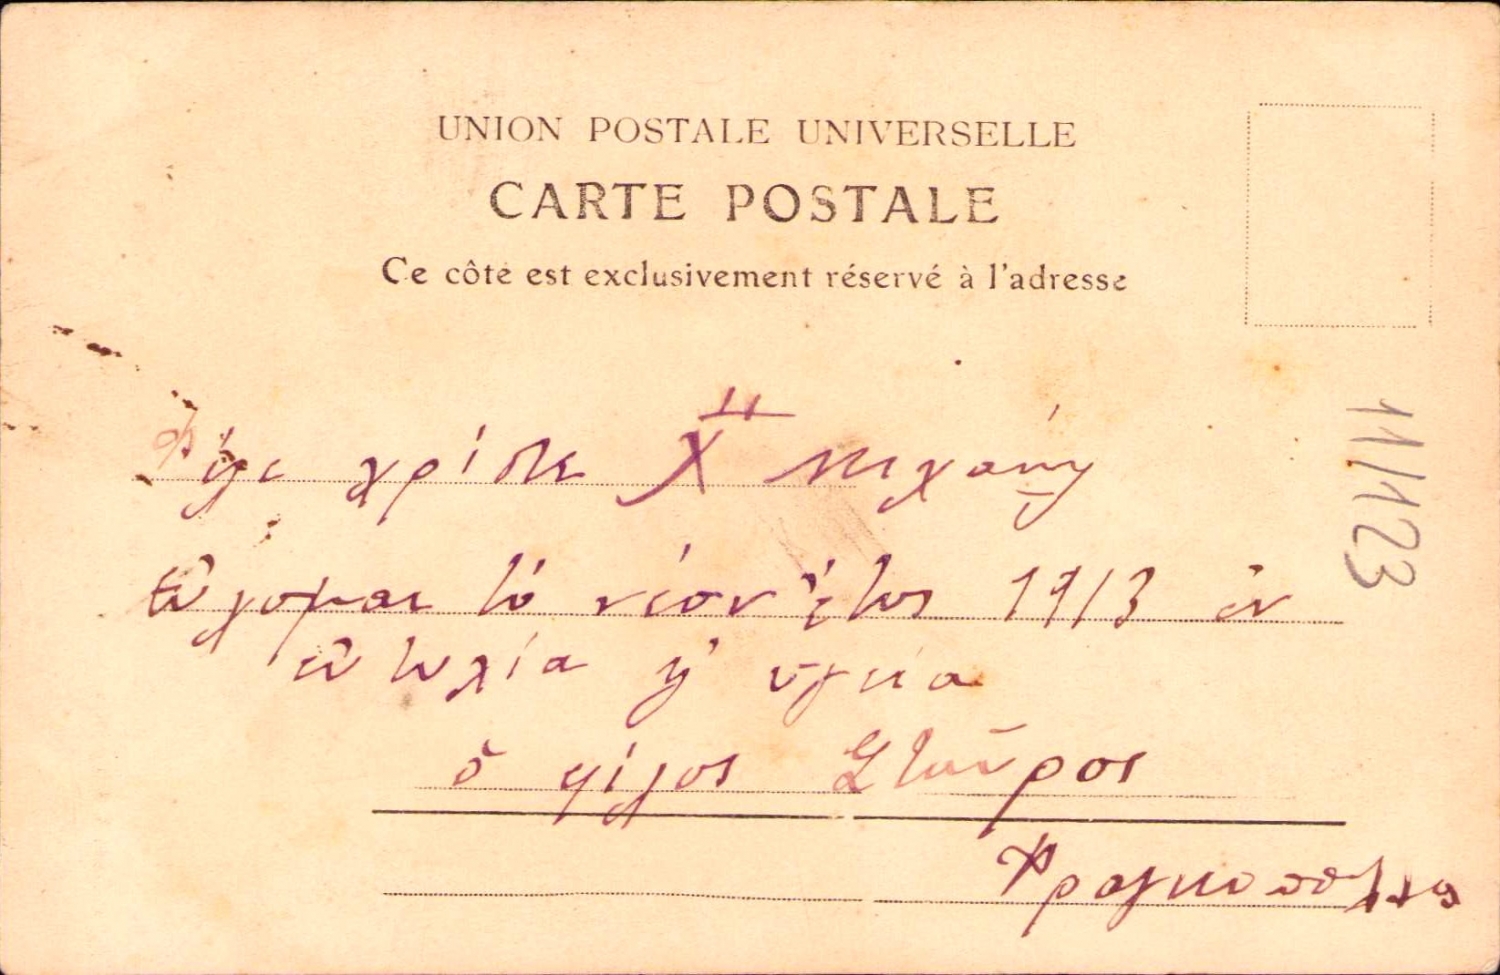 UNION POSTALE UNIVERSELLE
CARTE POSTALE
Ce côté est exclusivement réservé à l'adresse
11/123
Φίλε χρίστε Χ" μιχάλη
Εὔχομαι τό νέον ἔτος 1913 ἐν
εὐτυχία κ' υγεια
ὁ φίλος Σταῦρος
Φραγκοπουλος